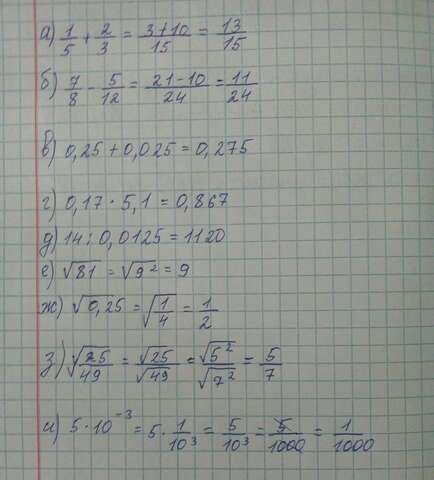 а) 1/5 + 2/3 = (3+10)/15 = 13/15
б) 7/8 - 5/12 = (21-10)/24 = 11/24
в) 0,25 + 0,025 = 0,275
г) 0,17 · 5,1 = 0,867
д) 14 : 0,0125 = 1120
е) √81 = √9² = 9
ж) √0,25 = √(1/4) = 1/2
з) √(25/49) = √25/√49 = √5²/√7² = 5/7
и) 5 · 10⁻³ = 5 · 1/10³ = 5/10³ = 5/1000 = 1/1000